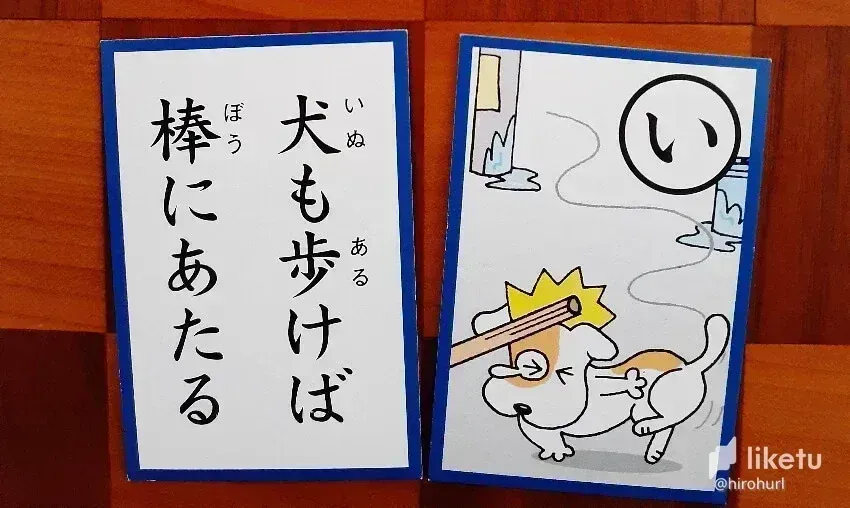 犬も歩けば
いぬ
ある
棒にあたる
ぼう
い
liketu
@hirohurl